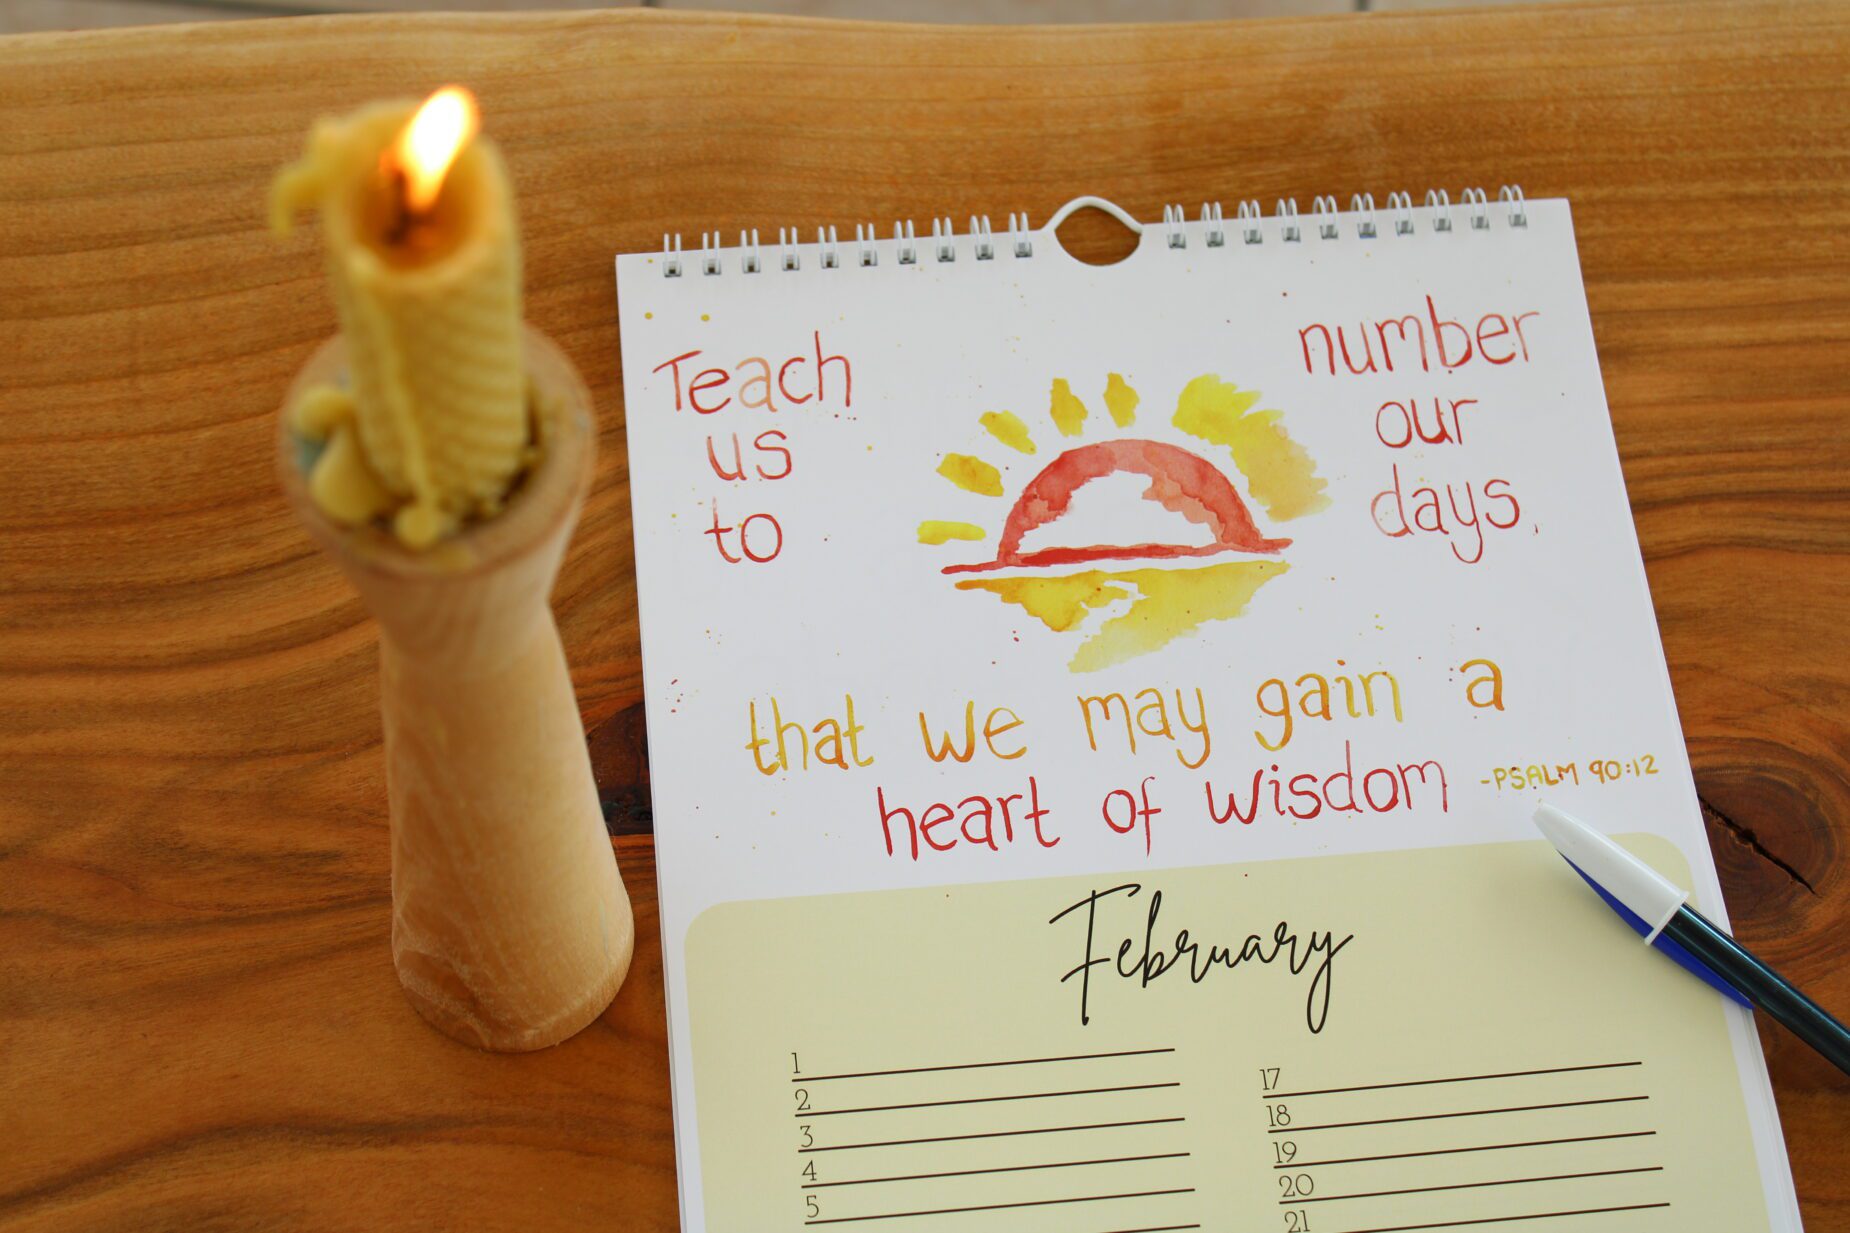 Teach
us
to
number
our
days.
that we may gain a
heart of wisdom
-PSALM 90:12
February
1
2
3
4
5
17
18
19
20
21